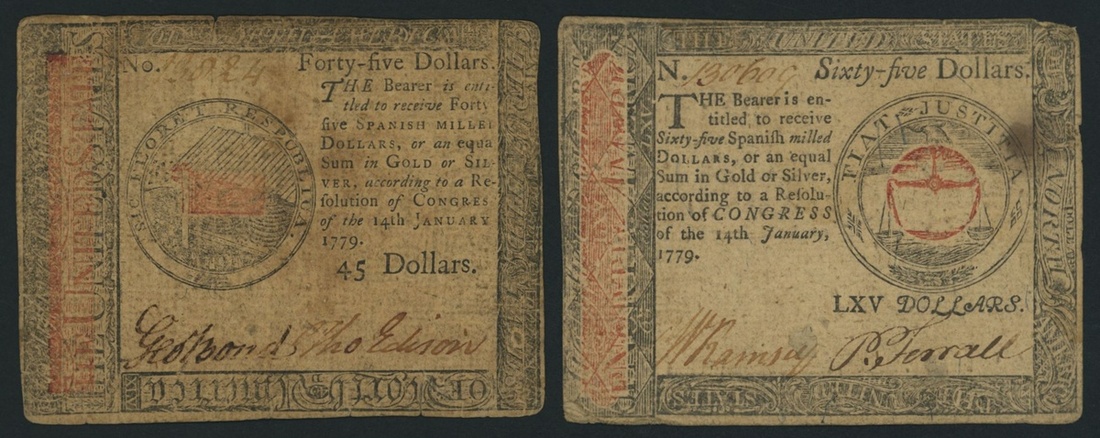 No. 3824 Forty-five Dollars.
THE Bearer is enti-
tled to receive Forty
five SPANISH MILLED
DOLLARS, or an equa
Sum in GOLD or SIL-
VER, according to a Re-
solution of CONGRES
of the 14th JANUARY
1779.
45 Dollars.
SIC FLORET RESPUBLICA.
THE UNITED STATES
OF NORTH AMERICA
Geo Bond Tho Edison
THE UNITED STATES
N. 130609 Sixty-five Dollars.
THE Bearer is en-
titled to receive
Sixty-five Spaniſh milled
DOLLARS, or an equal
Sum in Gold or Silver,
according to a Reſolu-
tion of CONGRESS
of the 14th January,
1779.
FIAT JUSTITIA
LXV DOLLARS.
W Ramsey P. Ferrall
NORTH